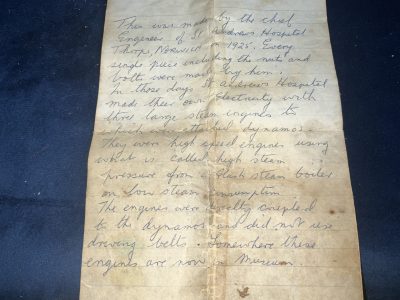 This was made by the chief
Engineer of St Andrews Hospital
Thorpe, NORWICH in 1925. Every
single piece including the nuts and
bolts were made by him.
In those days St Andrews Hospital
made their own Electricity with
three large steam engines to
which were attached dynamos.
They were high speed engines using
what is called high steam
pressure from a flash steam boiler
on low steam consumption
The engines were directly coupled
to the dynamos and did not use
driving belts. Somewhere these
engines are now in Museum